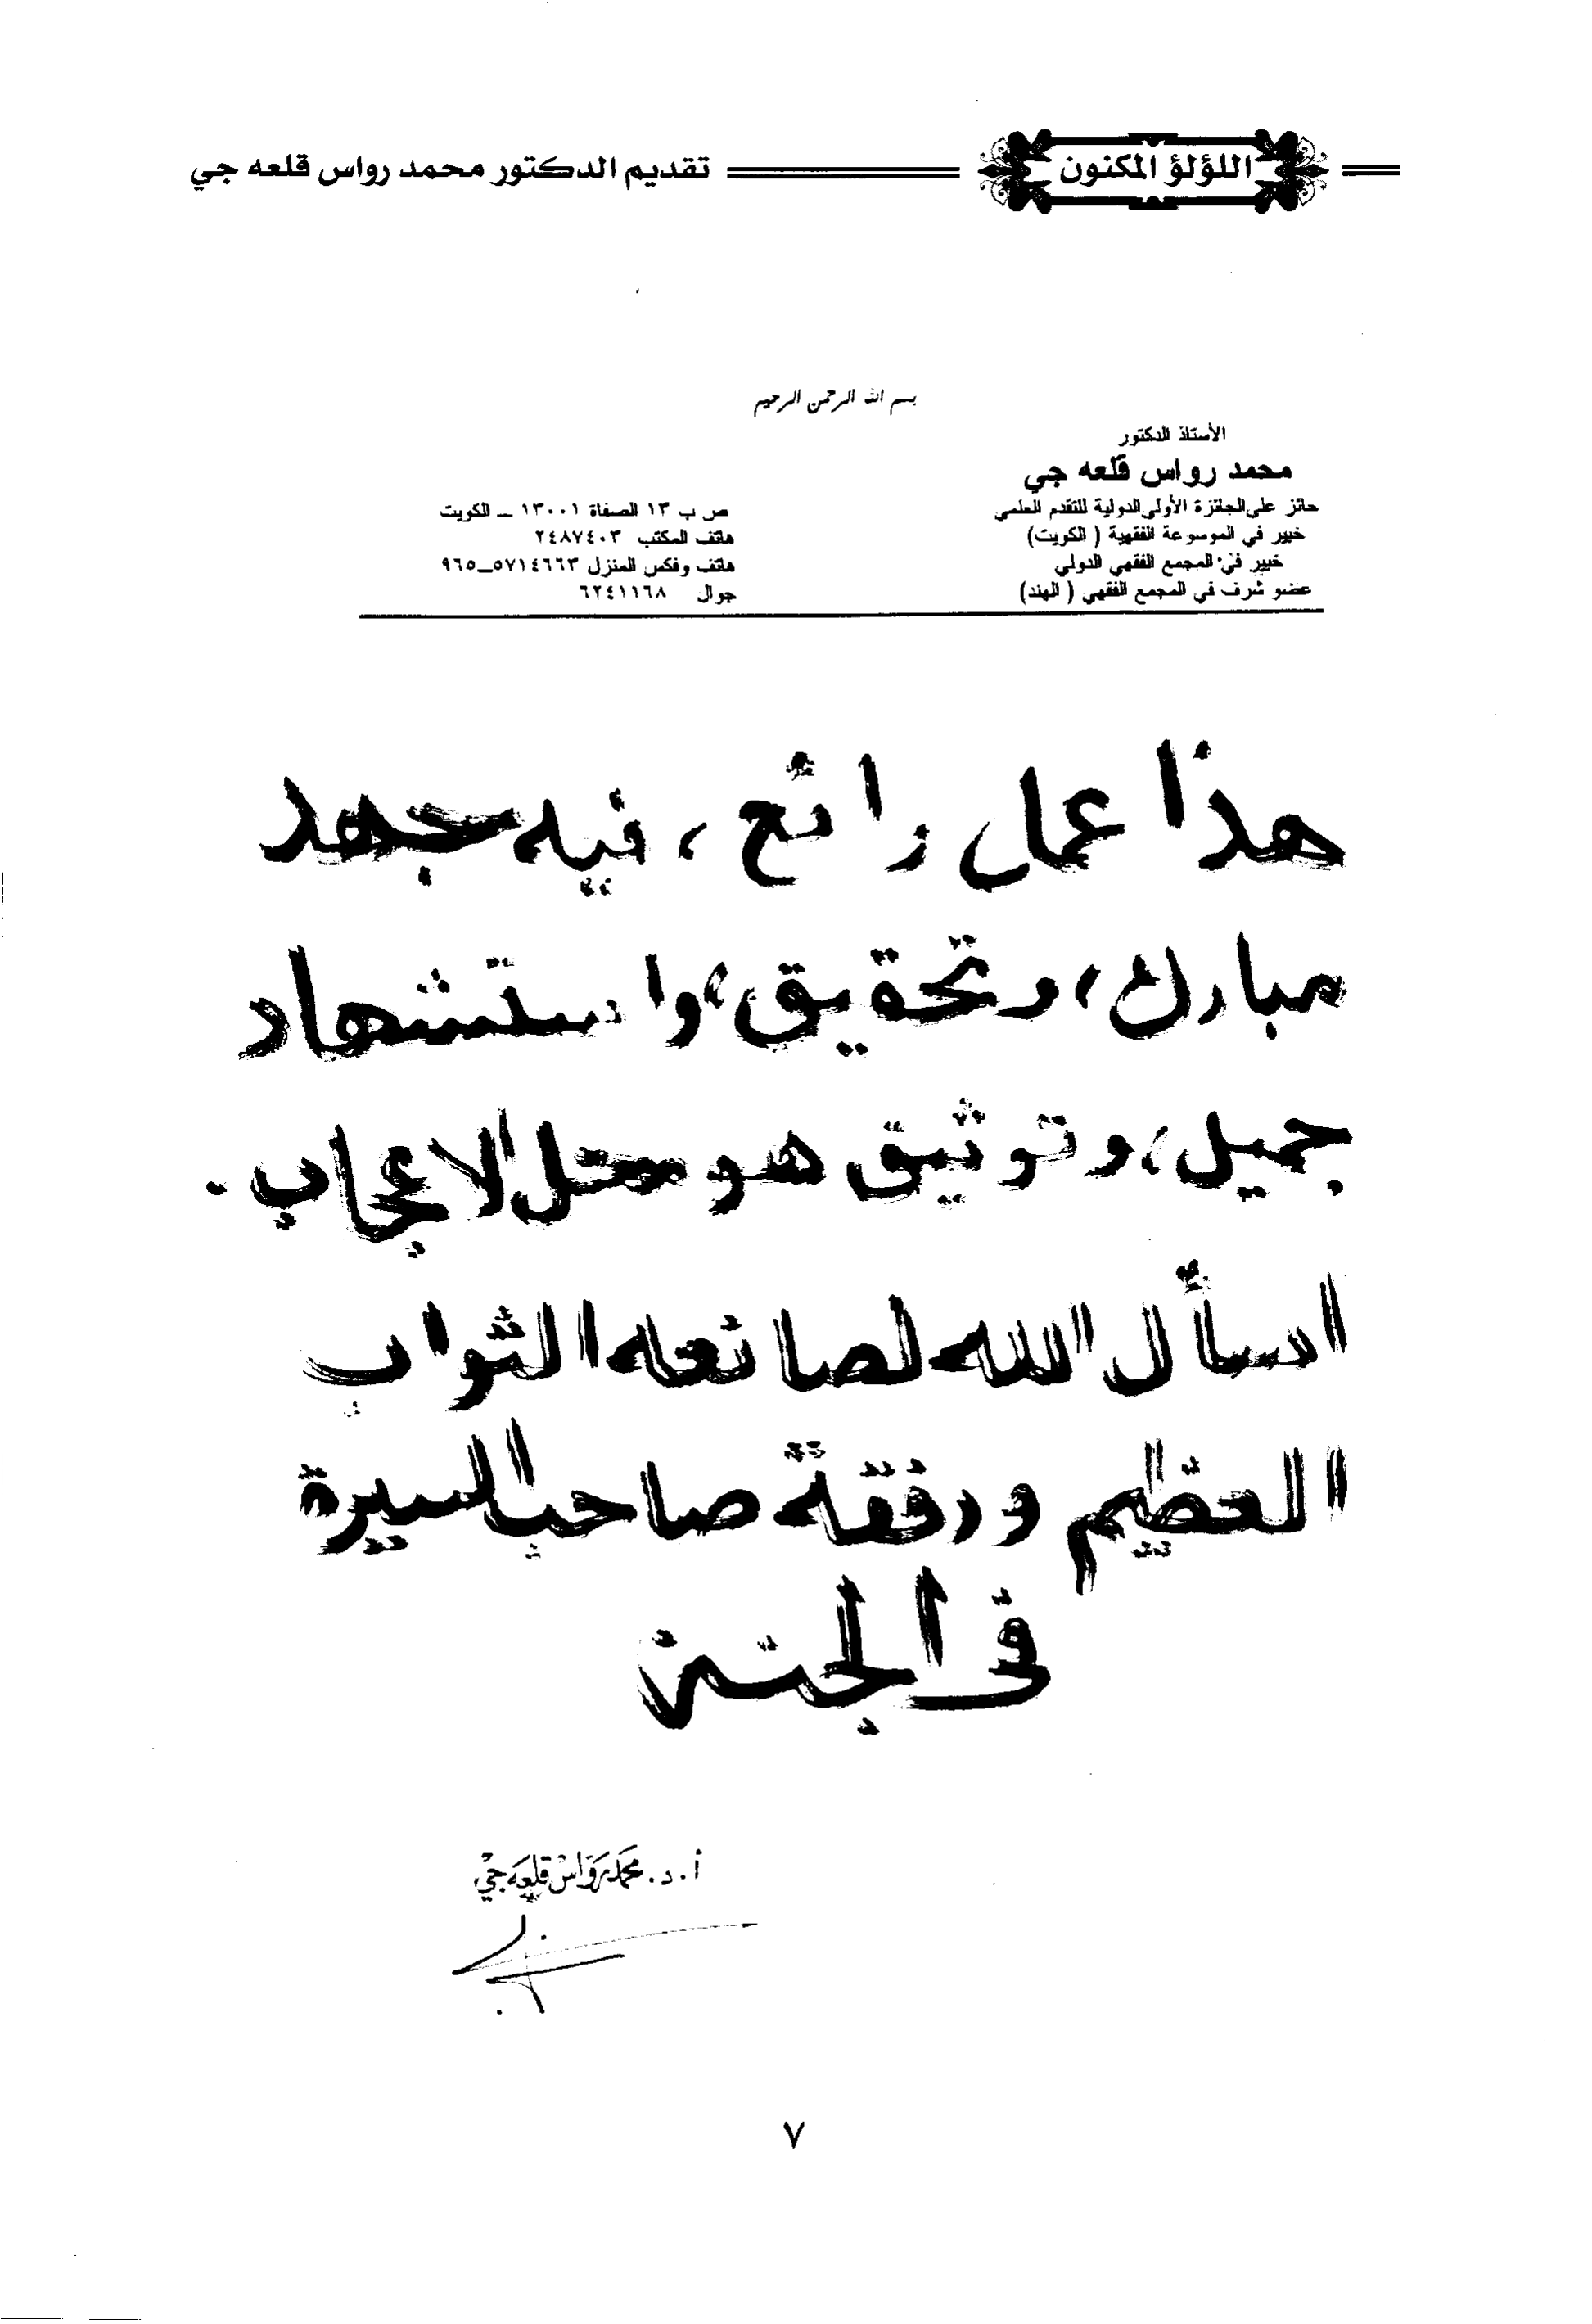 اللؤلؤ المكنون
تقديم الدكتور محمد رواس قلعه جي
بسم الله الرحمن الرحيم
الأستاذ الدكتور
محمد رواس قلعه جي
حائز على الجائزة الأولى الدولية للتقدم العلمي
خبير في الموسوعة الفقهية ( الكويت)
خبير في المجمع الفقهي الدولي
عضو شرف في المجمع الفقهي ( الهند)
ص ب ١٣ الصفاة ١٣٠٠١ – الكويت
هاتف المكتب ٢٤٨٧٤٠٣
هاتف وفكس المنزل ٥٧١٤٦٦٣–٩٦٥
جوال ٦٢٤١١٦٨
هذا عمل رائع ، فيه جهد
مبارك ، وتحقيق ، واستشهاد
جميل ، وتوثيق هو محل الاعجاب .
اسأل الله لصانعه الثواب
العظيم ورفقة صاحب السيرة
في الجنة
أ. د. محمد رواس قلعه جي
٧